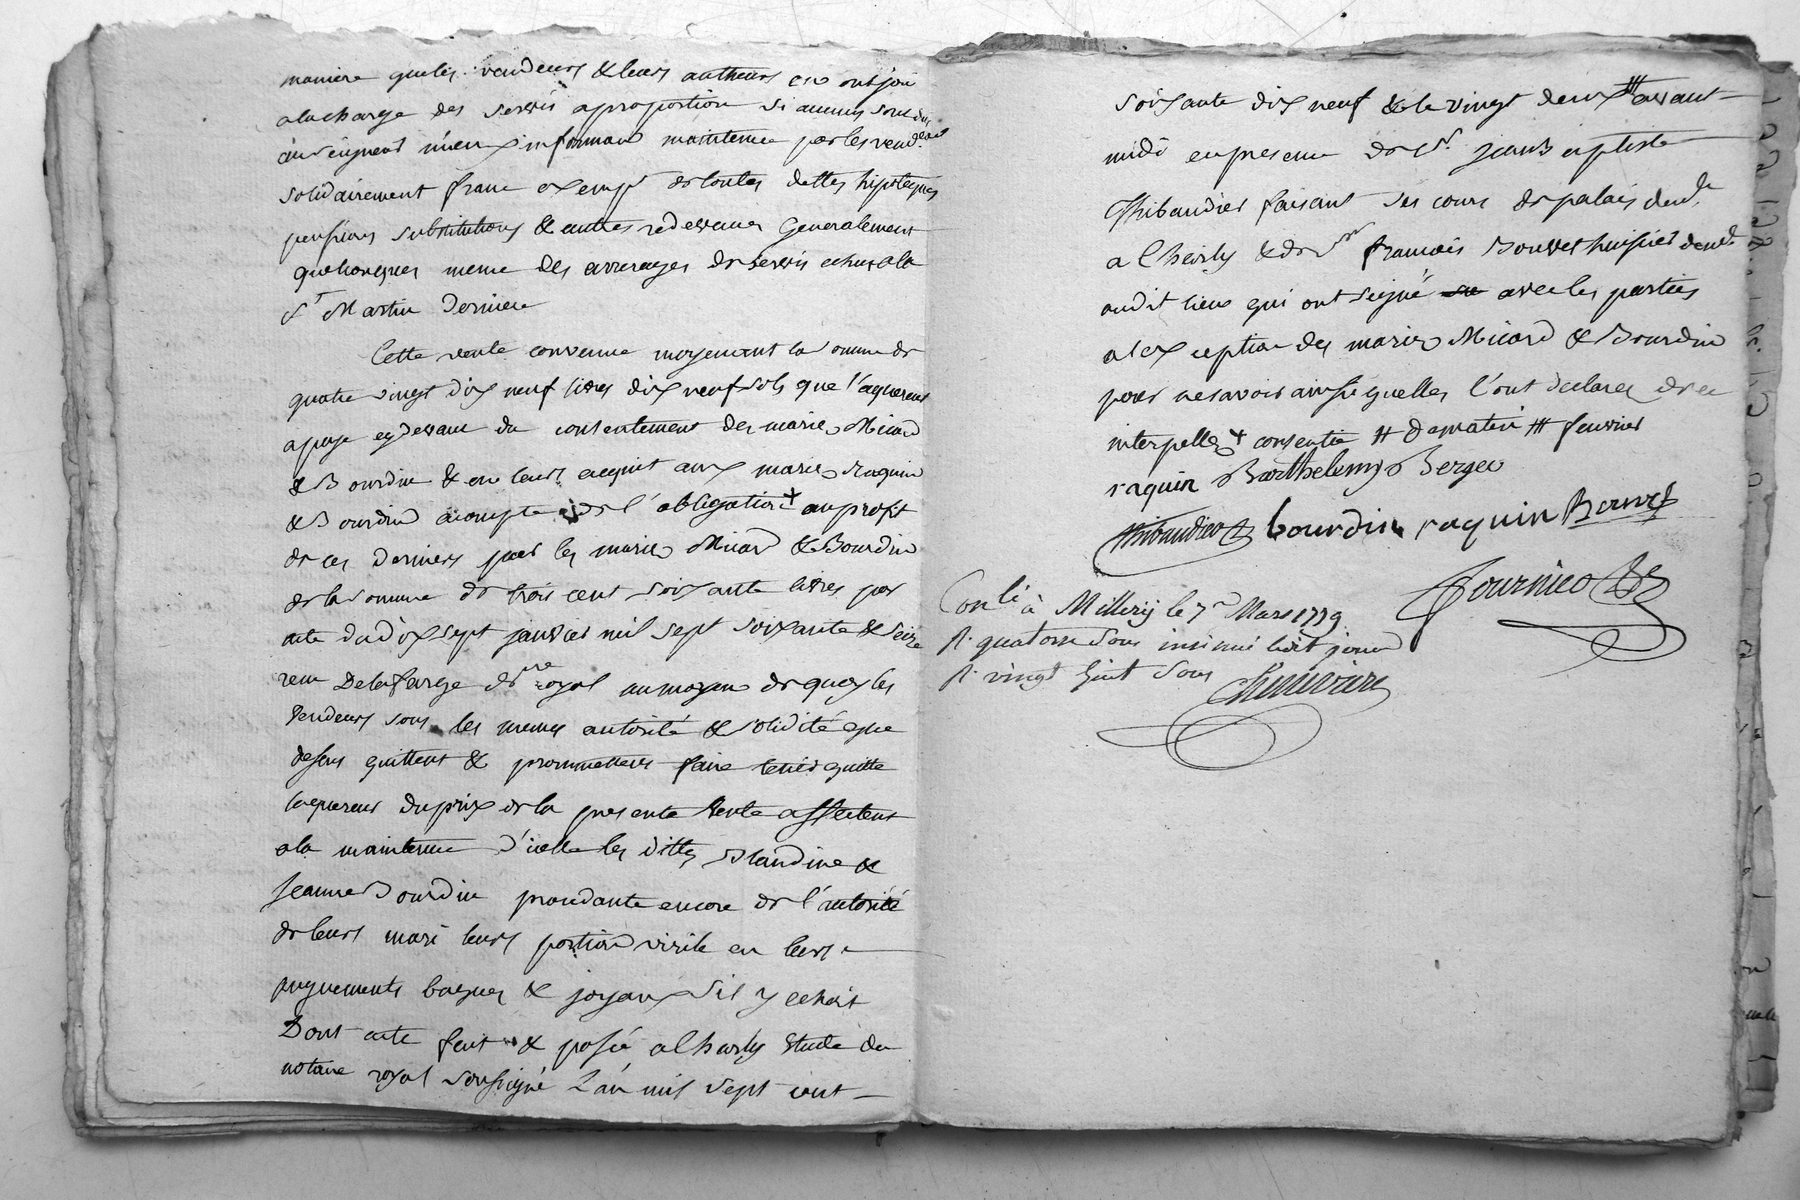 maniere que les vendeurs & leurs autheurs en ont joui
a la charge des servis a proportion si aucuns sont dus
mieux informand maintenue par les vend.
solidairement franc exempt de toutes dettes hipoteques
pensions substitutions & autres redevances Generalement
quelconques meme des arrerages de servis echus a la
St Martin derniere
Cette vente convenue moyenant la somme de
quatre vingt dix neuf livres dix neuf sols que l'aquereur
a paye cy devant du consentement des mariés Micard
& Bourdin & en leurs acquit aux mariés raquin
& Bourdin acompte de l'obligation + au profit
de ces derniers par les mariés Micard & Bourdin
de la somme de trois cent soixante livres par
acte du dix sept janvier mil sept soixante & seize
recu Delafarge nre royal au moyen de quoy les
vendeurs sous les memes autorité & solidité que
desus quittent & prommettent faire tenir quitte
laquereur du prix de la presente vente affectent
a la maintenue d'icelle les dittes Blandine &
Jeanne Bourdin procedante encore de l'autorité
de leurs mari leurs portion virile en leurs
augnements bagues & joyaux sil y echoit
Dont acte fait & passé a Charly Etude du
notaire royal soussigné L'an mil sept cent
soixante dix neuf & le vingt deux # avant
midi en presence de Sr. jean Baptiste
Thibaudier faisant ses cours de palais demt.
a Charly & de Sr francois Bouvet huissier demt.
audit lieux qui ont signé avec les parties
a l'exception des mariés Micard & Bourdin
pour ne savoir ainsi quelles l'ont declaré de ce
interpellés + consentie # de matin # fevrier
raquin Barthelemy Berger
thibaudier bourdin raquin Bouvet
Fournier
Conlé à Millery le 7e Mars 1779
R. quatorze sous insinué ledit jour
R. vingt huit sous
Chenevier